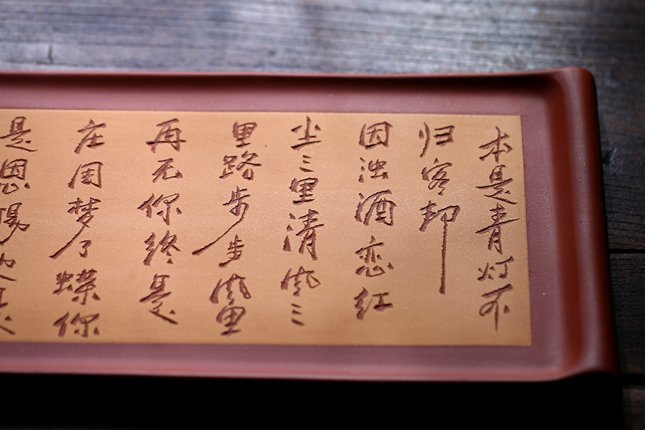 本是青灯不
归客却
因浊酒恋红
尘三里清风三
里路步步风里
再无你终是
庄周梦了蝶你
是恩赐也是